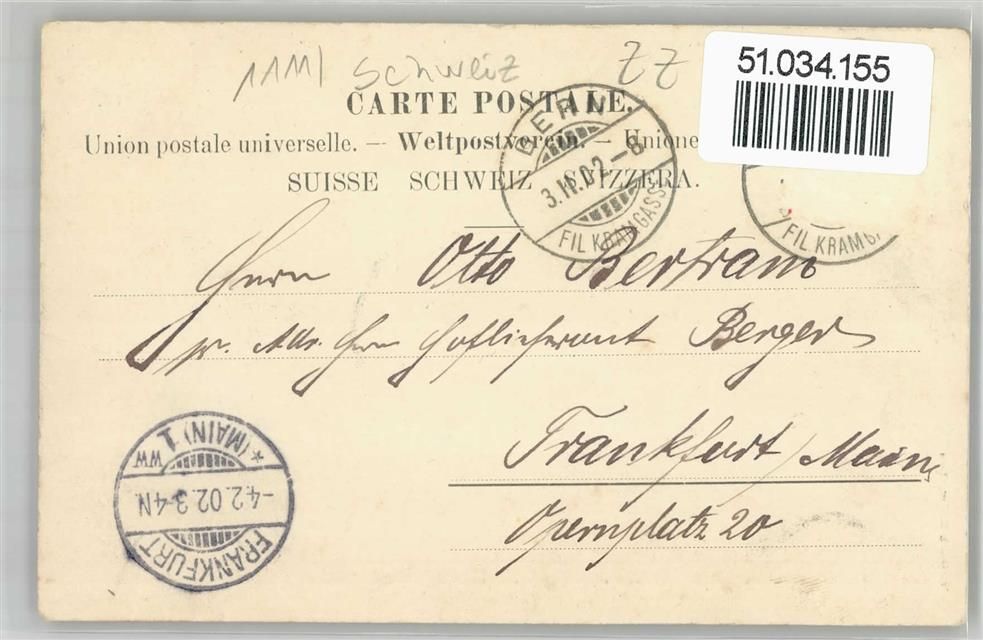 1111 Schweiz ZZ
51.034.155
CARTE POSTALE.
Union postale universelle. — Weltpostverein. — Unione
SUISSE SCHWEIZ SVIZZERA.
BERN
3.II.02.–8
FIL. KRAMGASSE
FIL. KRAMG
Herrn Otto Bertram
pr. Adr. Herrn Hoflieferant Berger
Frankfurt / Main,
Opernplatz 20
FRANKFURT
–4.2.02.3-4N.
* (MAIN) 1 WW